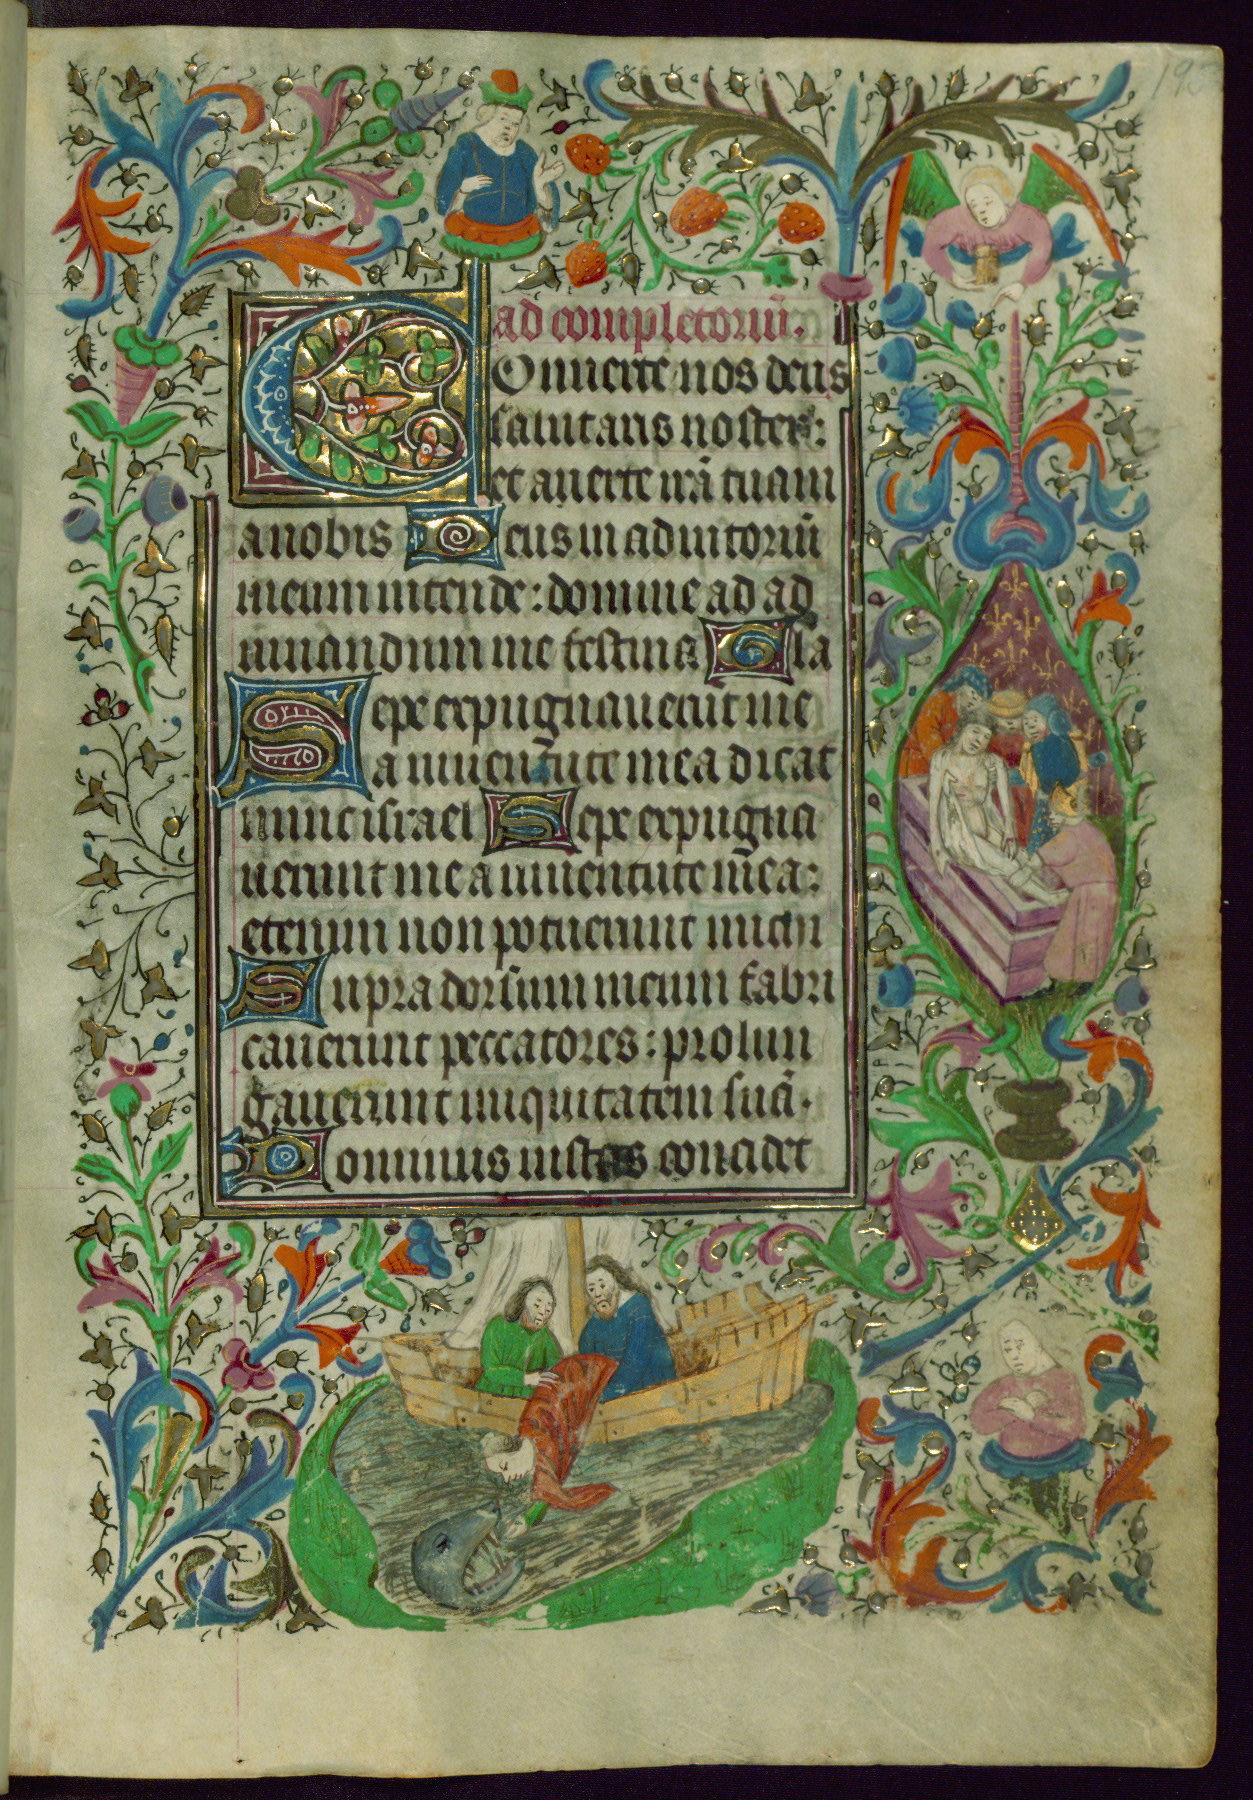 195
ad completoriū.
Conuerte nos deus
salutaris noster:
et auerte irā tuam
a nobis Deus in adiutoriū
meum intende: domine ad ad
iuuandum me festina Gla
Sepe expugnauerūt me
a iuuentute mea dicat
nunc israel Sepe expugna
uerunt me a iuuentute mea:
etenim non potuerunt michi
Supra dorsum meum fabri
cauerunt peccatores: prolun
gauerunt iniquitatem suā.
Dominus iustus concidet